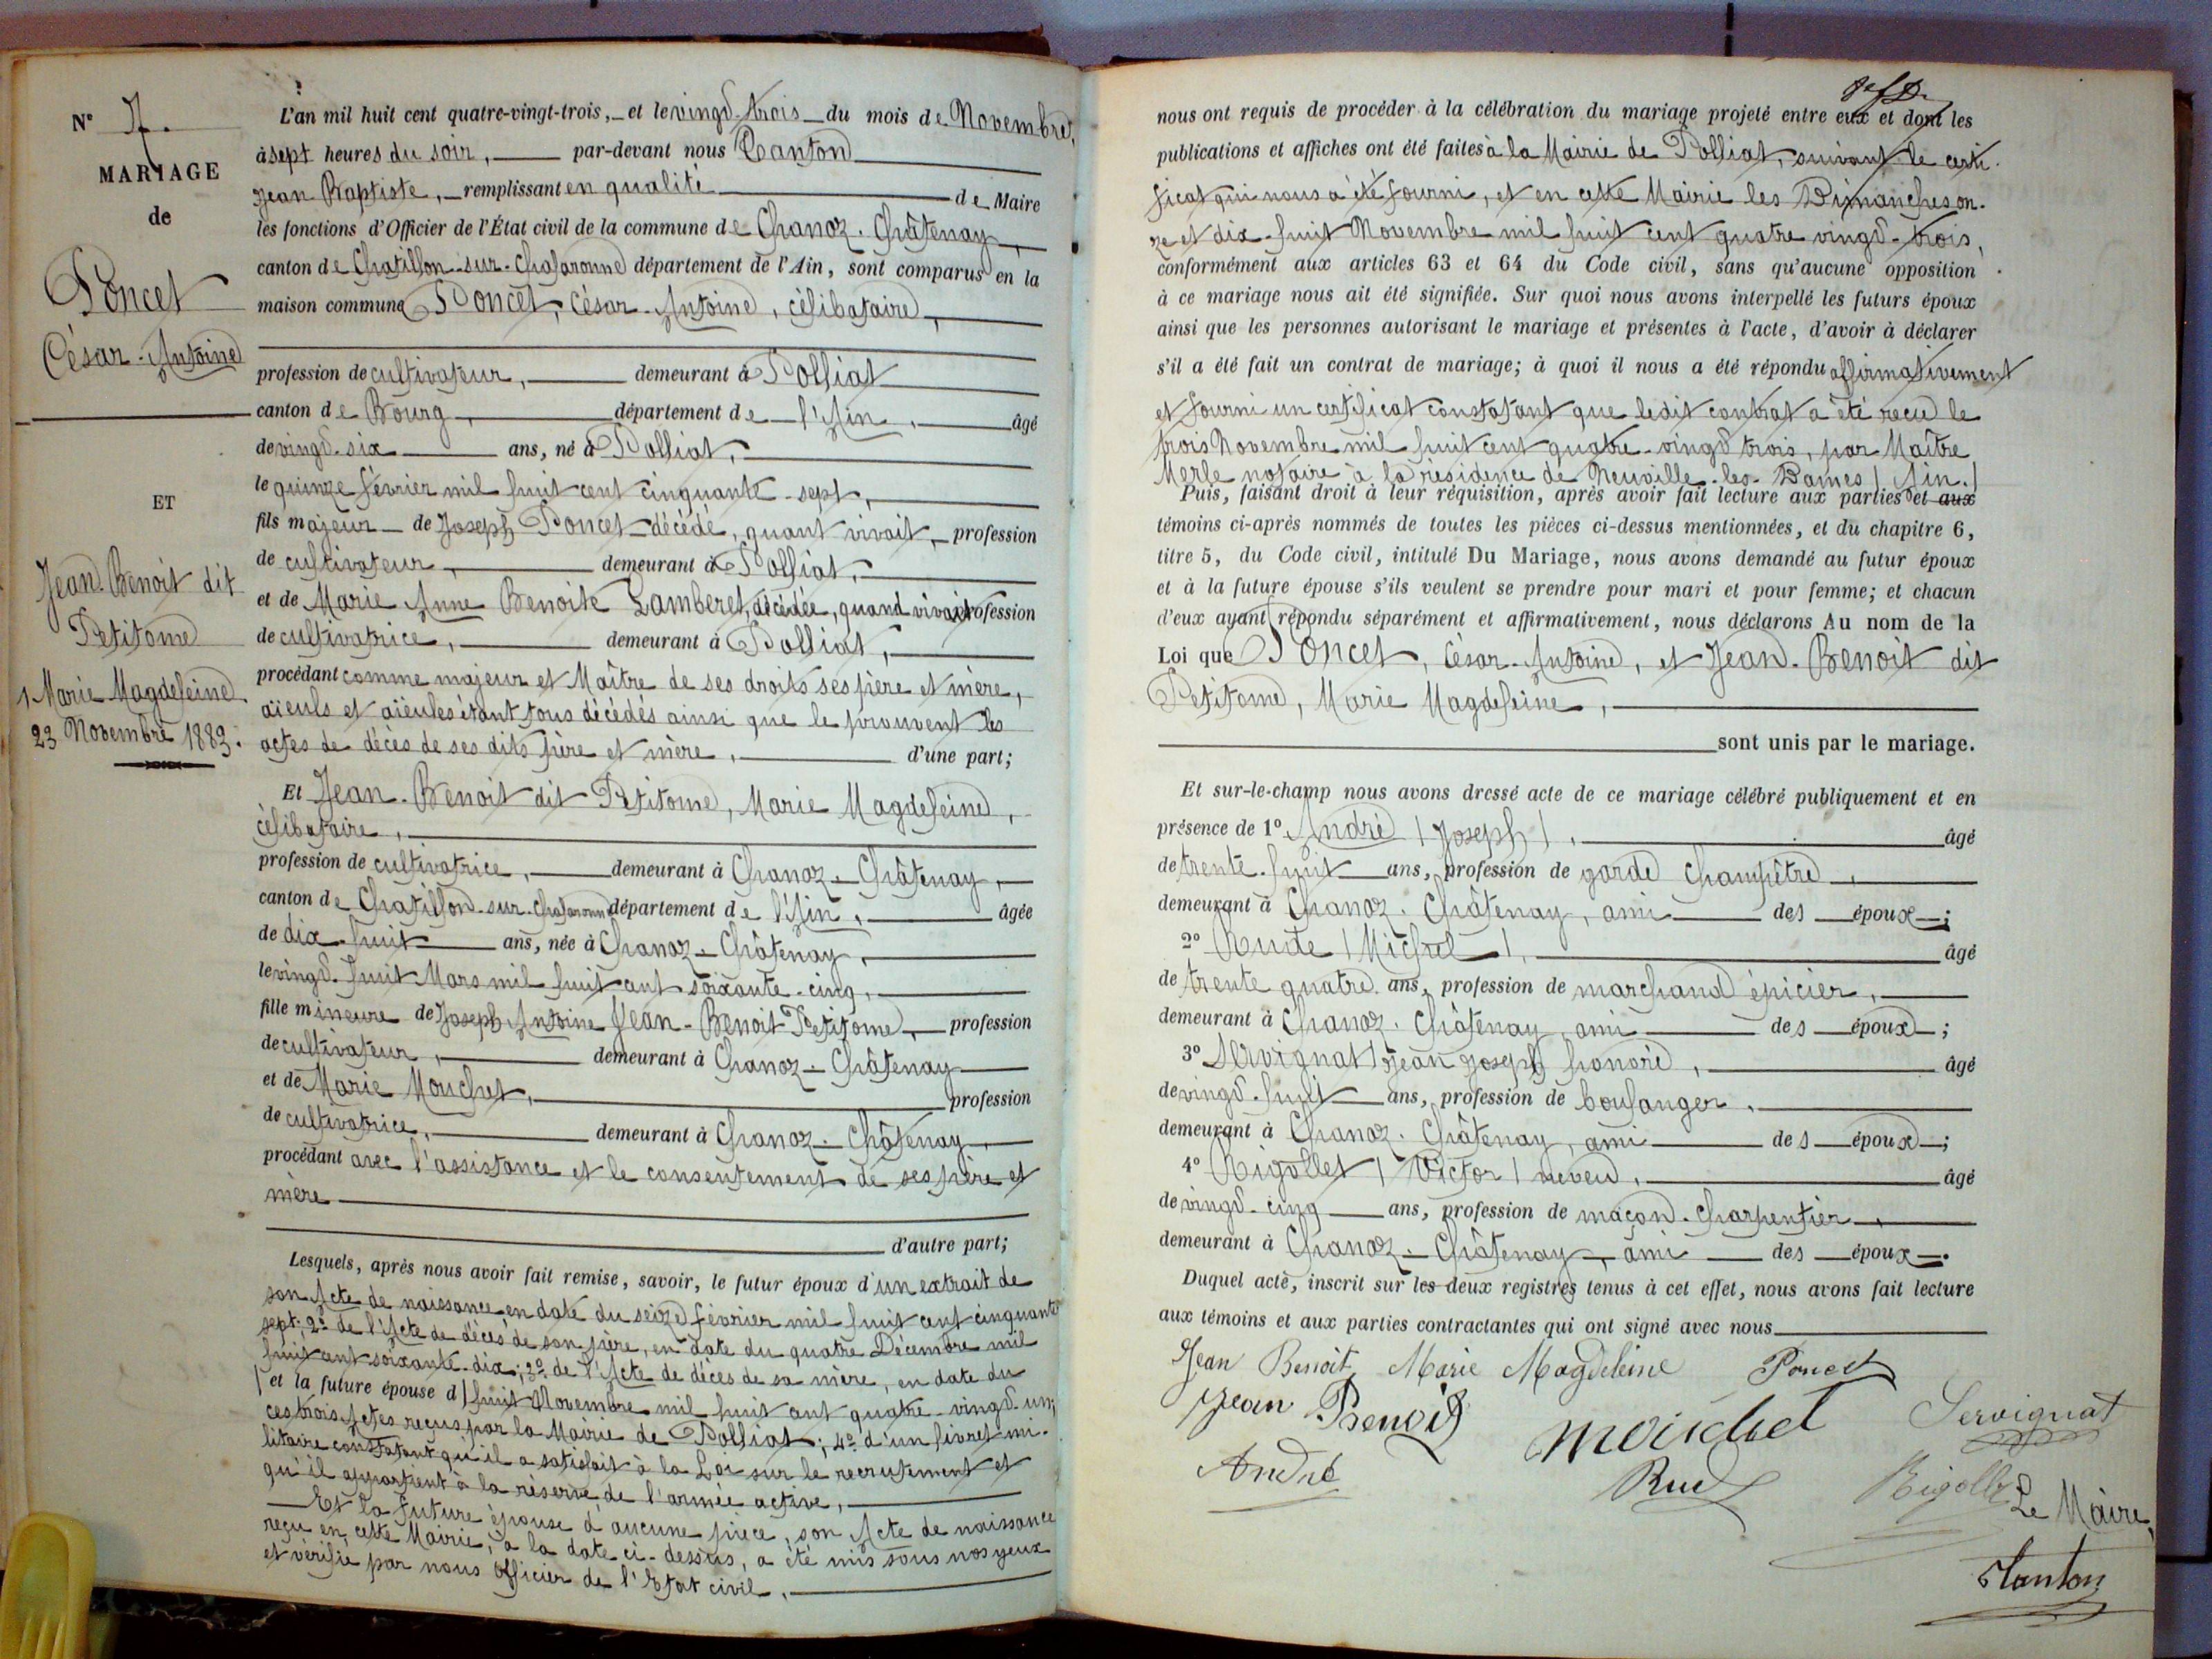 N° 7.
MARIAGE
de
Poncet
César-Antoine
ET
Jean-Benoit dit
Petitome
Marie Magdeleine
23 Novembre 1883.
L'an mil huit cent quatre-vingt-trois, et le vingt-trois du mois de Novembre,
à sept heures du soir, par-devant nous Tanton
Jean Baptiste, remplissant en qualité de Maire
les fonctions d'Officier de l'État civil de la commune de Chanoz-Châtenay,
canton de Chatillon-sur-Chalaronne département de l'Ain, sont comparus en la
maison commune Poncet, César-Antoine, célibataire,
profession de cultivateur, demeurant à Polliat
canton de Bourg, département de l'Ain, âgé
de vingt-six ans, né à Polliat,
le quinze février mil huit cent cinquante-sept,
fils majeur de Joseph Poncet décédé, quant vivait, profession
de cultivateur, demeurant à Polliat,
et de Marie Anne Benoite Lamberet, décédée, quand vivait profession
de cultivatrice, demeurant à Polliat,
procédant comme majeur et Maître de ses droits ses père et mère,
aïeuls et aïeules étant tous décédés ainsi que le prouvent les
actes de décès de ses dits père et mère, d'une part;
Et Jean-Benoit dit Petitome, Marie Magdeleine,
célibataire,
profession de cultivatrice, demeurant à Chanoz-Châtenay,
canton de Chatillon-sur-Chalaronne département de l'Ain, âgée
de dix-huit ans, née à Chanoz-Châtenay,
le vingt-huit Mars mil huit cent soixante-cinq,
fille mineure de Joseph Antoine Jean-Benoit Petitome, profession
de cultivateur, demeurant à Chanoz-Châtenay
et de Marie Mouchet, profession
de cultivatrice, demeurant à Chanoz-Châtenay,
procédant avec l'assistance et le consentement de ses père et
mère
d'autre part;
Lesquels, après nous avoir fait remise, savoir, le futur époux d'un extrait de
son Acte de naissance en date du seize février mil huit cent cinquante
sept; 2° de l'Acte de décès de son père, en date du quatre Décembre mil
huit cent soixante-dix; 3° de l'Acte de décès de sa mère, en date du
et la future épouse d huit Novembre mil huit cent quatre-vingt-un;
ces trois Actes reçus par la Mairie de Polliat; 4° d'un livret mi-
litaire constatant qu'il a satisfait à la Loi sur le recrutement et
qu'il appartient à la réserve de l'armée active,
Et la future épouse d'aucune pièce, son Acte de naissance
reçu en cette Mairie, à la date ci-dessus, a été mis sous nos yeux
et vérifié par nous officier de l'État civil,
nous ont requis de procéder à la célébration du mariage projeté entre eux et dont les
publications et affiches ont été faites à la Mairie de Polliat, suivant le certi-
ficat qui nous a été fourni, et en cette Mairie les Dimanches on-
ze et dix-huit Novembre mil huit cent quatre vingt-trois,
conformément aux articles 63 et 64 du Code civil, sans qu'aucune opposition
à ce mariage nous ait été signifiée. Sur quoi nous avons interpellé les futurs époux
ainsi que les personnes autorisant le mariage et présentes à l'acte, d'avoir à déclarer
s'il a été fait un contrat de mariage; à quoi il nous a été répondu affirmativement
et fourni un certificat constatant que ledit contrat a été reçu le
trois Novembre mil huit cent quatre-vingt trois, par Maître
Merle notaire à la résidence de Neuville-les-Dames (Ain.)
Puis, faisant droit à leur réquisition, après avoir fait lecture aux parties et aux
témoins ci-après nommés de toutes les pièces ci-dessus mentionnées, et du chapitre 6,
titre 5, du Code civil, intitulé Du Mariage, nous avons demandé au futur époux
et à la future épouse s'ils veulent se prendre pour mari et pour femme; et chacun
d'eux ayant répondu séparément et affirmativement, nous déclarons Au nom de la
Loi que Poncet, César-Antoine, et Jean-Benoit dit
Petitome, Marie Magdeleine,
sont unis par le mariage.
Et sur-le-champ nous avons dressé acte de ce mariage célébré publiquement et en
présence de 1° André (Joseph), âgé
de trente-huit ans, profession de garde champêtre,
demeurant à Chanoz-Châtenay, ami des époux;
2° Rude (Michel), âgé
de trente quatre ans, profession de marchand épicier,
demeurant à Chanoz-Châtenay, ami des époux;
3° Servignat (Jean Joseph honoré, âgé
de vingt-huit ans, profession de boulanger,
demeurant à Chanoz-Châtenay, ami des époux;
4° Rigollet (Victor) neveu, âgé
de vingt-cinq ans, profession de maçon-charpentier,
demeurant à Chanoz-Châtenay, ami des époux.
Duquel acte, inscrit sur les deux registres tenus à cet effet, nous avons fait lecture
aux témoins et aux parties contractantes qui ont signé avec nous
Jean Benoit Marie Magdeleine Poncet
Jean Benoit Mouchet Servignat
André Rude Rigollet Le Maire,
Tanton